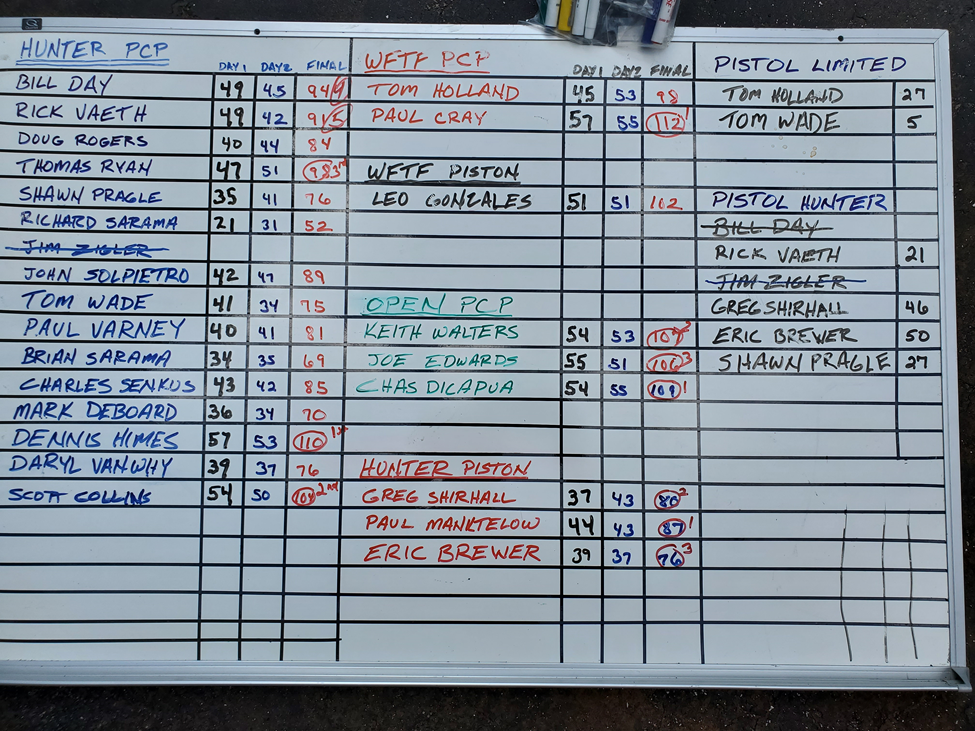 HUNTER PCP
DAY1 DAY2 FINAL
BILL DAY 49 45 94
RICK VAETH 49 42 91
DOUG ROGERS 40 44 84
THOMAS RYAN 47 51 98 3rd
SHAWN PRAGLE 35 41 76
RICHARD SARAMA 21 31 52
JIM ZIGLER
JOHN SOLPIETRO 42 47 89
TOM WADE 41 34 75
PAUL VARNEY 40 41 81
BRIAN SARAMA 34 35 69
CHARLES SENKUS 43 42 85
MARK DEBOARD 36 34 70
DENNIS HIMES 57 53 110 1st
DARYL VANWHY 39 37 76
SCOTT COLLINS 54 50 104 2nd
WFTF PCP
DAY1 DAY2 FINAL
TOM HOLLAND 45 53 98
PAUL CRAY 57 55 112 1
WFTF PISTON
LEO GONZALES 51 51 102
OPEN PCP
KEITH WALTERS 54 53 107 2
JOE EDWARDS 55 51 106 3
CHAS DICAPUA 54 55 109 1
HUNTER PISTON
GREG SHIRHALL 37 43 80 2
PAUL MANKTELOW 44 43 87 1
ERIC BREWER 39 37 76 3
PISTOL LIMITED
TOM HOLLAND 27
TOM WADE 5
PISTOL HUNTER
BILL DAY
RICK VAETH 21
JIM ZIGLER
GREG SHIRHALL 46
ERIC BREWER 50
SHAWN PRAGLE 27